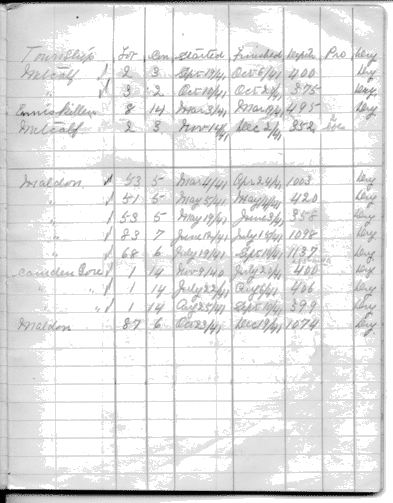 Township Lot Con Started Finished Depth Pro Dry
Metcalf 2 3 Sept 19/41 Oct 6/41 400 Dry
" 3 2 Oct 10/41 Oct 27/41 375 Dry
Enniskillen 8 14 Mar 3/41 Mar 19/41 495 Dry
Metcalf 2 3 Nov 14/41 Dec 2/41 352 Dry
Maldon 53 5 Mar 4/41 Apr 24/41 1003 Dry
" 51 5 May 5/41 May 420 Dry
" 53 5 May 19/41 June 3/41 358 Dry
" 83 7 June 12/41 July 15/41 1098 Dry
" 68 6 July 19/41 Sept 1137 Dry
Camden Gore 1 14 Nov 9/40 July 2/41 400 Dry
" " 1 14 July 22/41 Aug 6/41 406 Dry
" 1 14 Aug 25/41 Sept 10/41 399 Dry
Maldon 87 6 Oct 23/41 Dec 19/41 1074 Dry